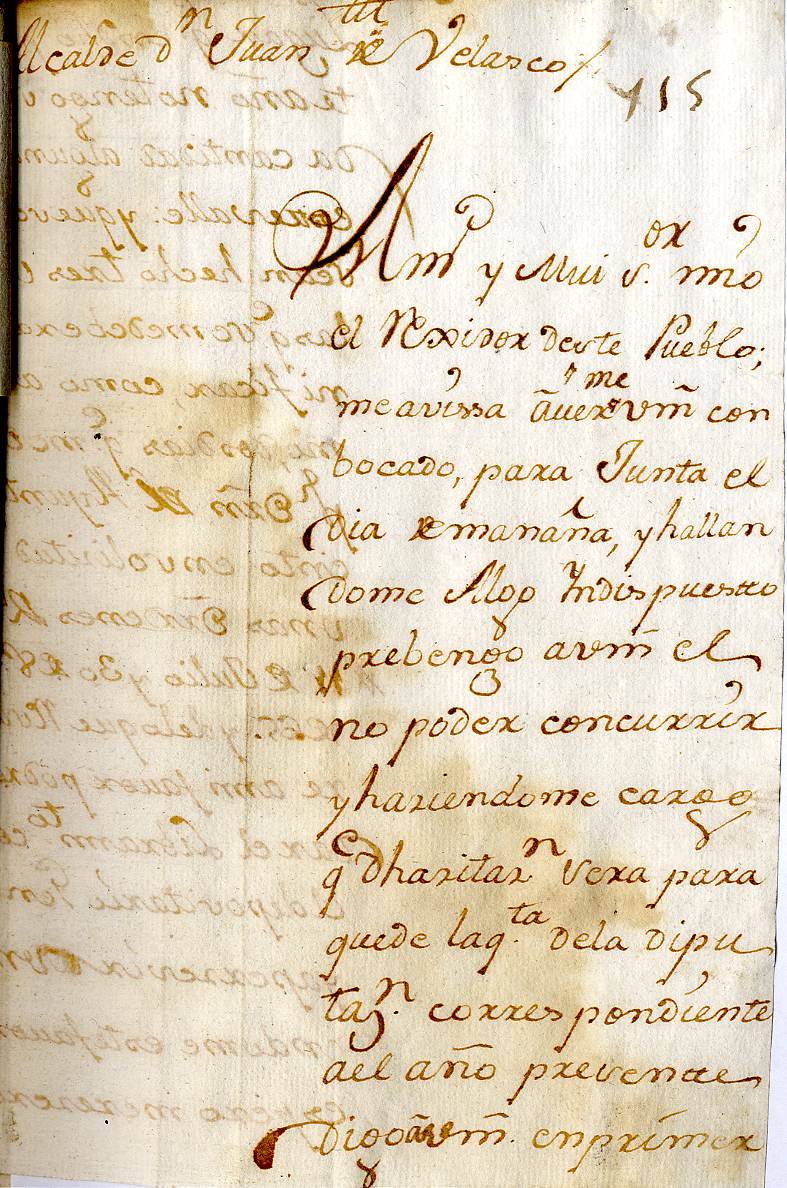 Alcalde Dn Juan de Velasco
415
y Mui sor mio
el Rexidor deste Pueblo;
me avissa averme vm con
bocado, para Junta el
Dia de mañana, y hallan
dome Algo Yndispuesto
prebengo avm el
no poder concurrir
y haziendome cargo
qe dha zitazn sera para
quede la qta dela dipu
tazn. correspondiente
ael año presente
Digo avm. en primer